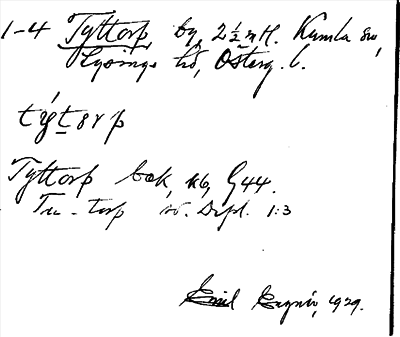 1-4 Tyttorp, by, 2 1/2 mtl. Kumla sn,
Lysings hd, Österg. l.
týtorp
Tyttorp bok, kb, G44.
torp sv. Dipl. 1:3
Emil 1929.